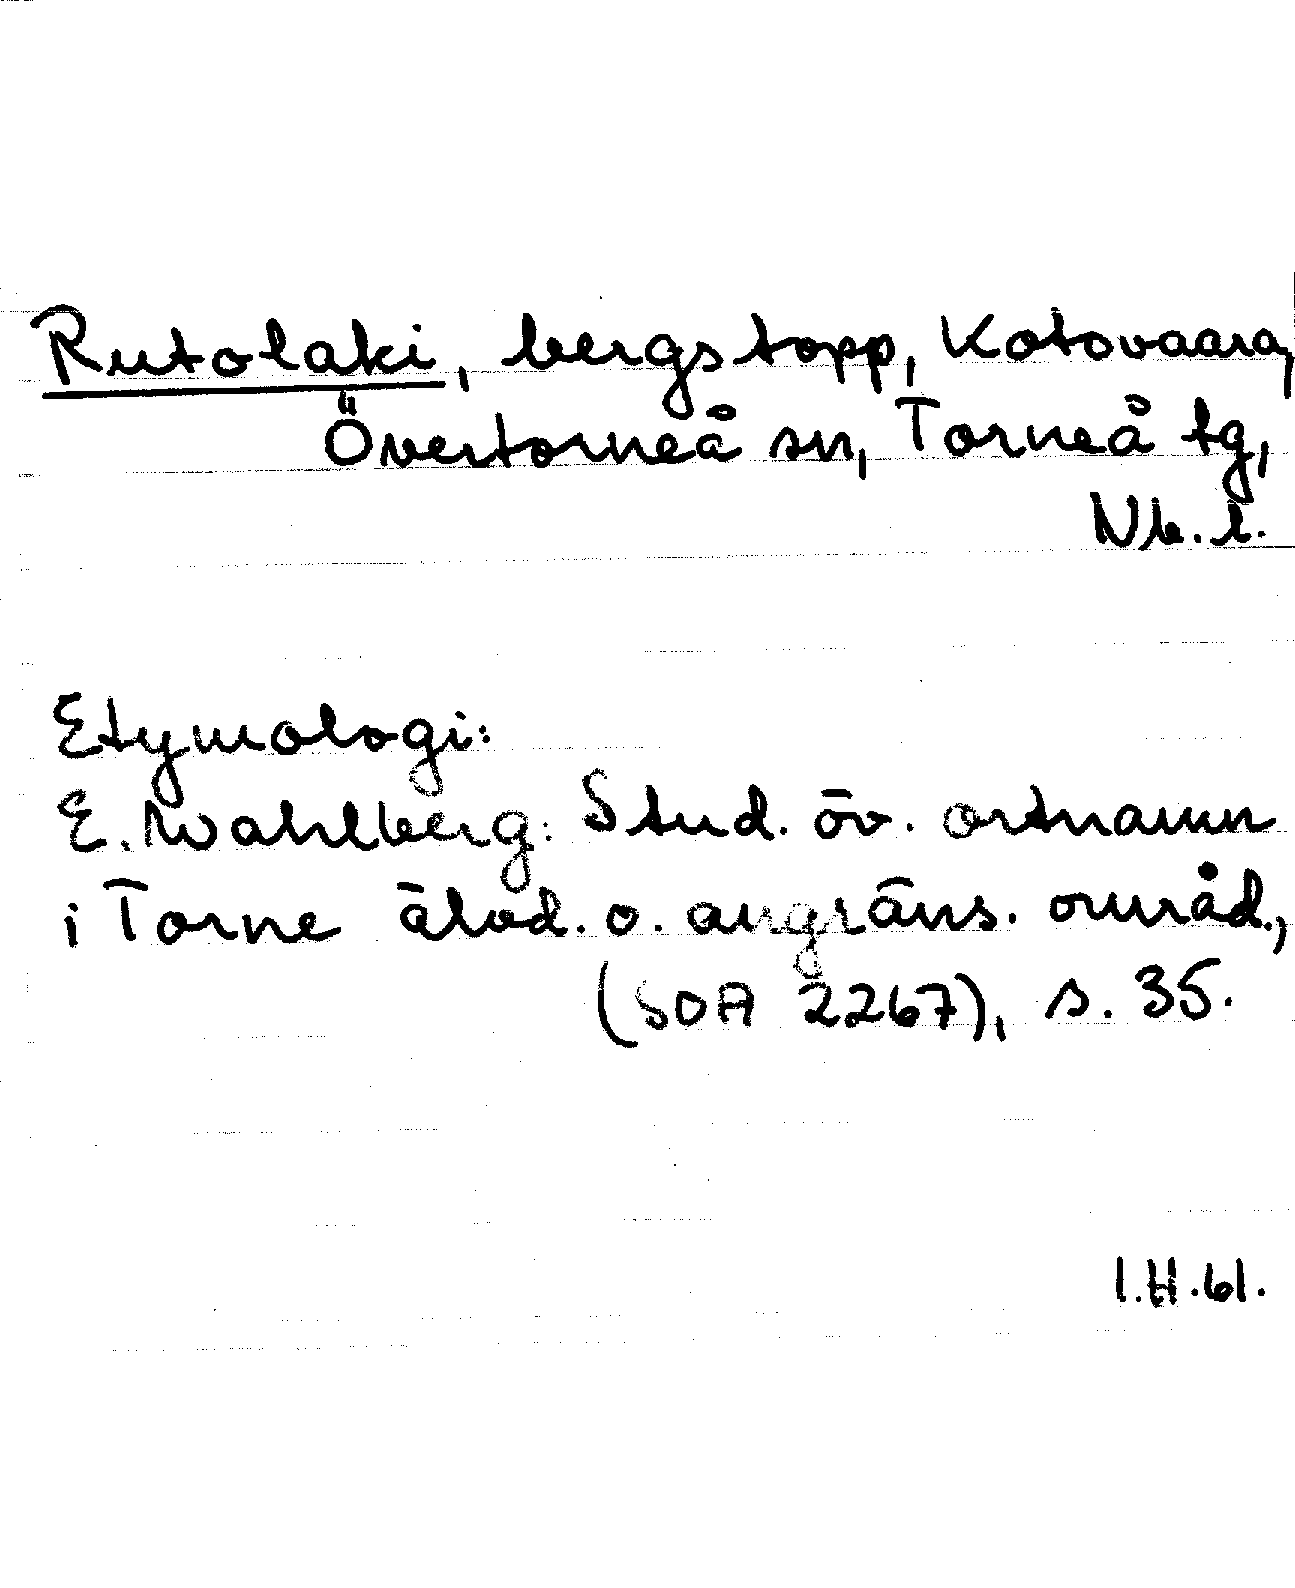 Rutolaki, bergstopp, Kotovaara,
Övertorneå sn, Torneå tg,
Nb. l.
Etymologi:
E. Wahlberg: Stud. öv. ortnamn
i Torne älvd. o. angräns. områd.,
(SOA 2267), s. 35.
I.H.61.